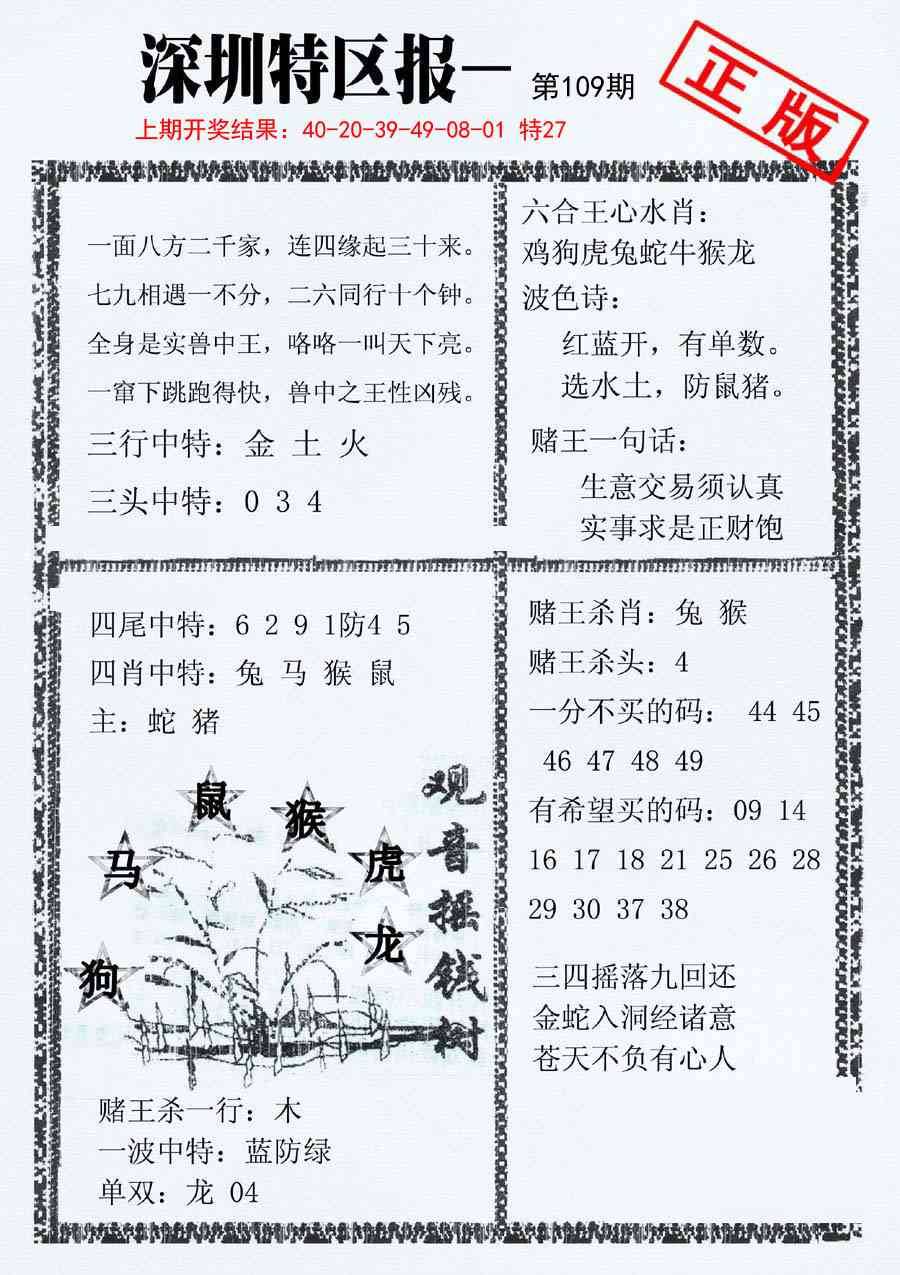 深圳特区报一 第109期
正版
上期开奖结果：40-20-39-49-08-01 特27
一面八方二千家，连四缘起三十来。
七九相遇一不分，二六同行十个钟。
全身是实兽中王，咯咯一叫天下亮。
一窜下跳跑得快，兽中之王性凶残。
三行中特：金 土 火
三头中特：0 3 4
六合王心水肖：
鸡狗虎兔蛇牛猴龙
波色诗：
红蓝开，有单数。
选水土，防鼠猪。
赌王一句话：
生意交易须认真
实事求是正财饱
四尾中特：6 2 9 1防4 5
四肖中特：兔 马 猴 鼠
主：蛇 猪
鼠
猴
马
虎
龙
狗
观音摇钱树
赌王杀一行：木
一波中特：蓝防绿
单双：龙 04
赌王杀肖：兔 猴
赌王杀头：4
一分不买的码： 44 45
46 47 48 49
有希望买的码：09 14
16 17 18 21 25 26 28
29 30 37 38
三四摇落九回还
金蛇入洞经诸意
苍天不负有心人